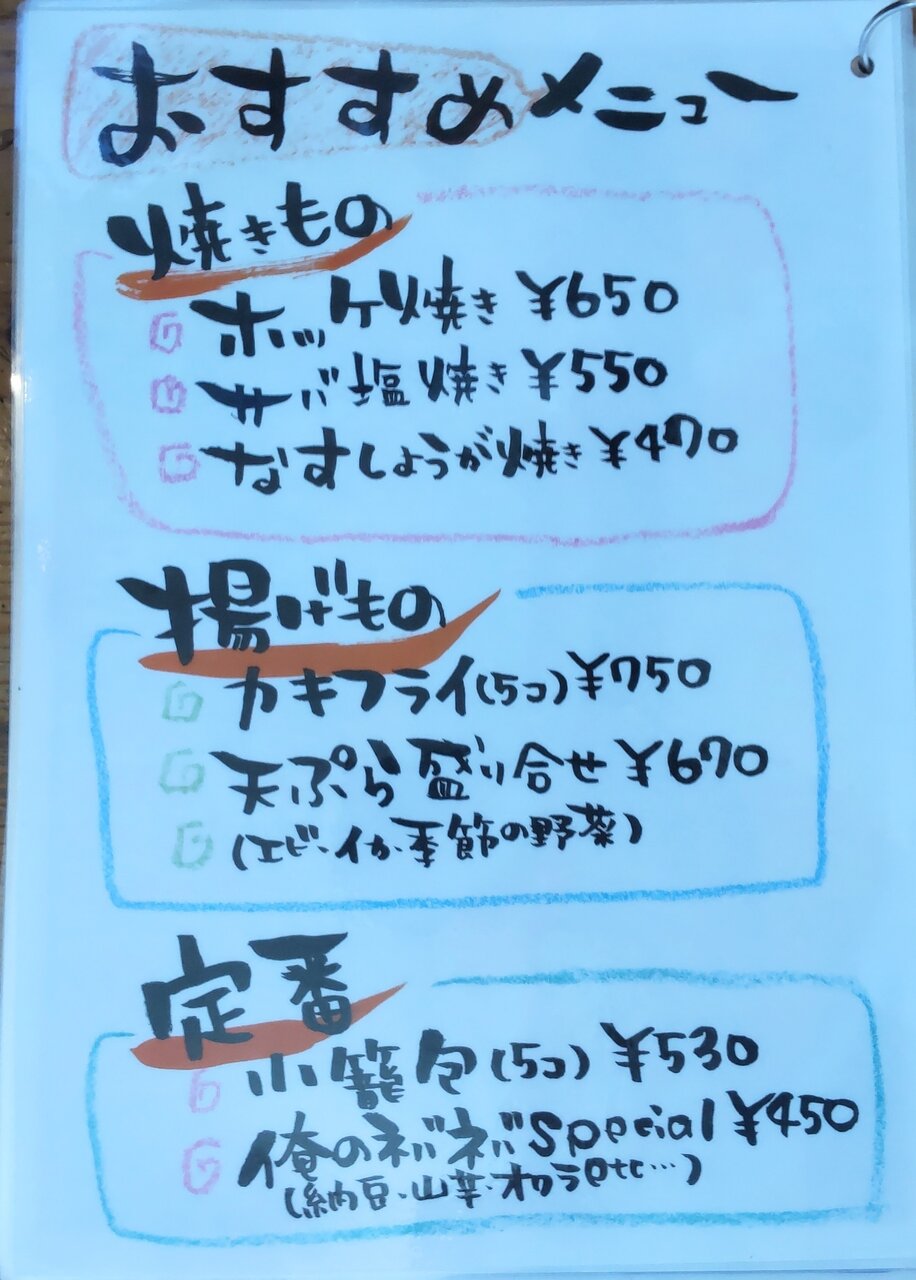 おすすめメニュー
焼きもの
ホッケ焼き ¥650
サバ塩焼き ¥550
なすしょうが焼き ¥470
揚げもの
カキフライ(5コ) ¥750
天ぷら盛り合せ ¥670
(エビ・イカ・季節の野菜)
定番
小籠包(5コ) ¥530
俺のネバネバSpecial ¥450
(納豆・山芋・オクラetc…)